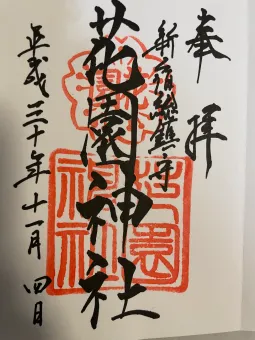 奉拝
新宿総鎮守
花園神社
平成三十年十一月四日
花園
神社